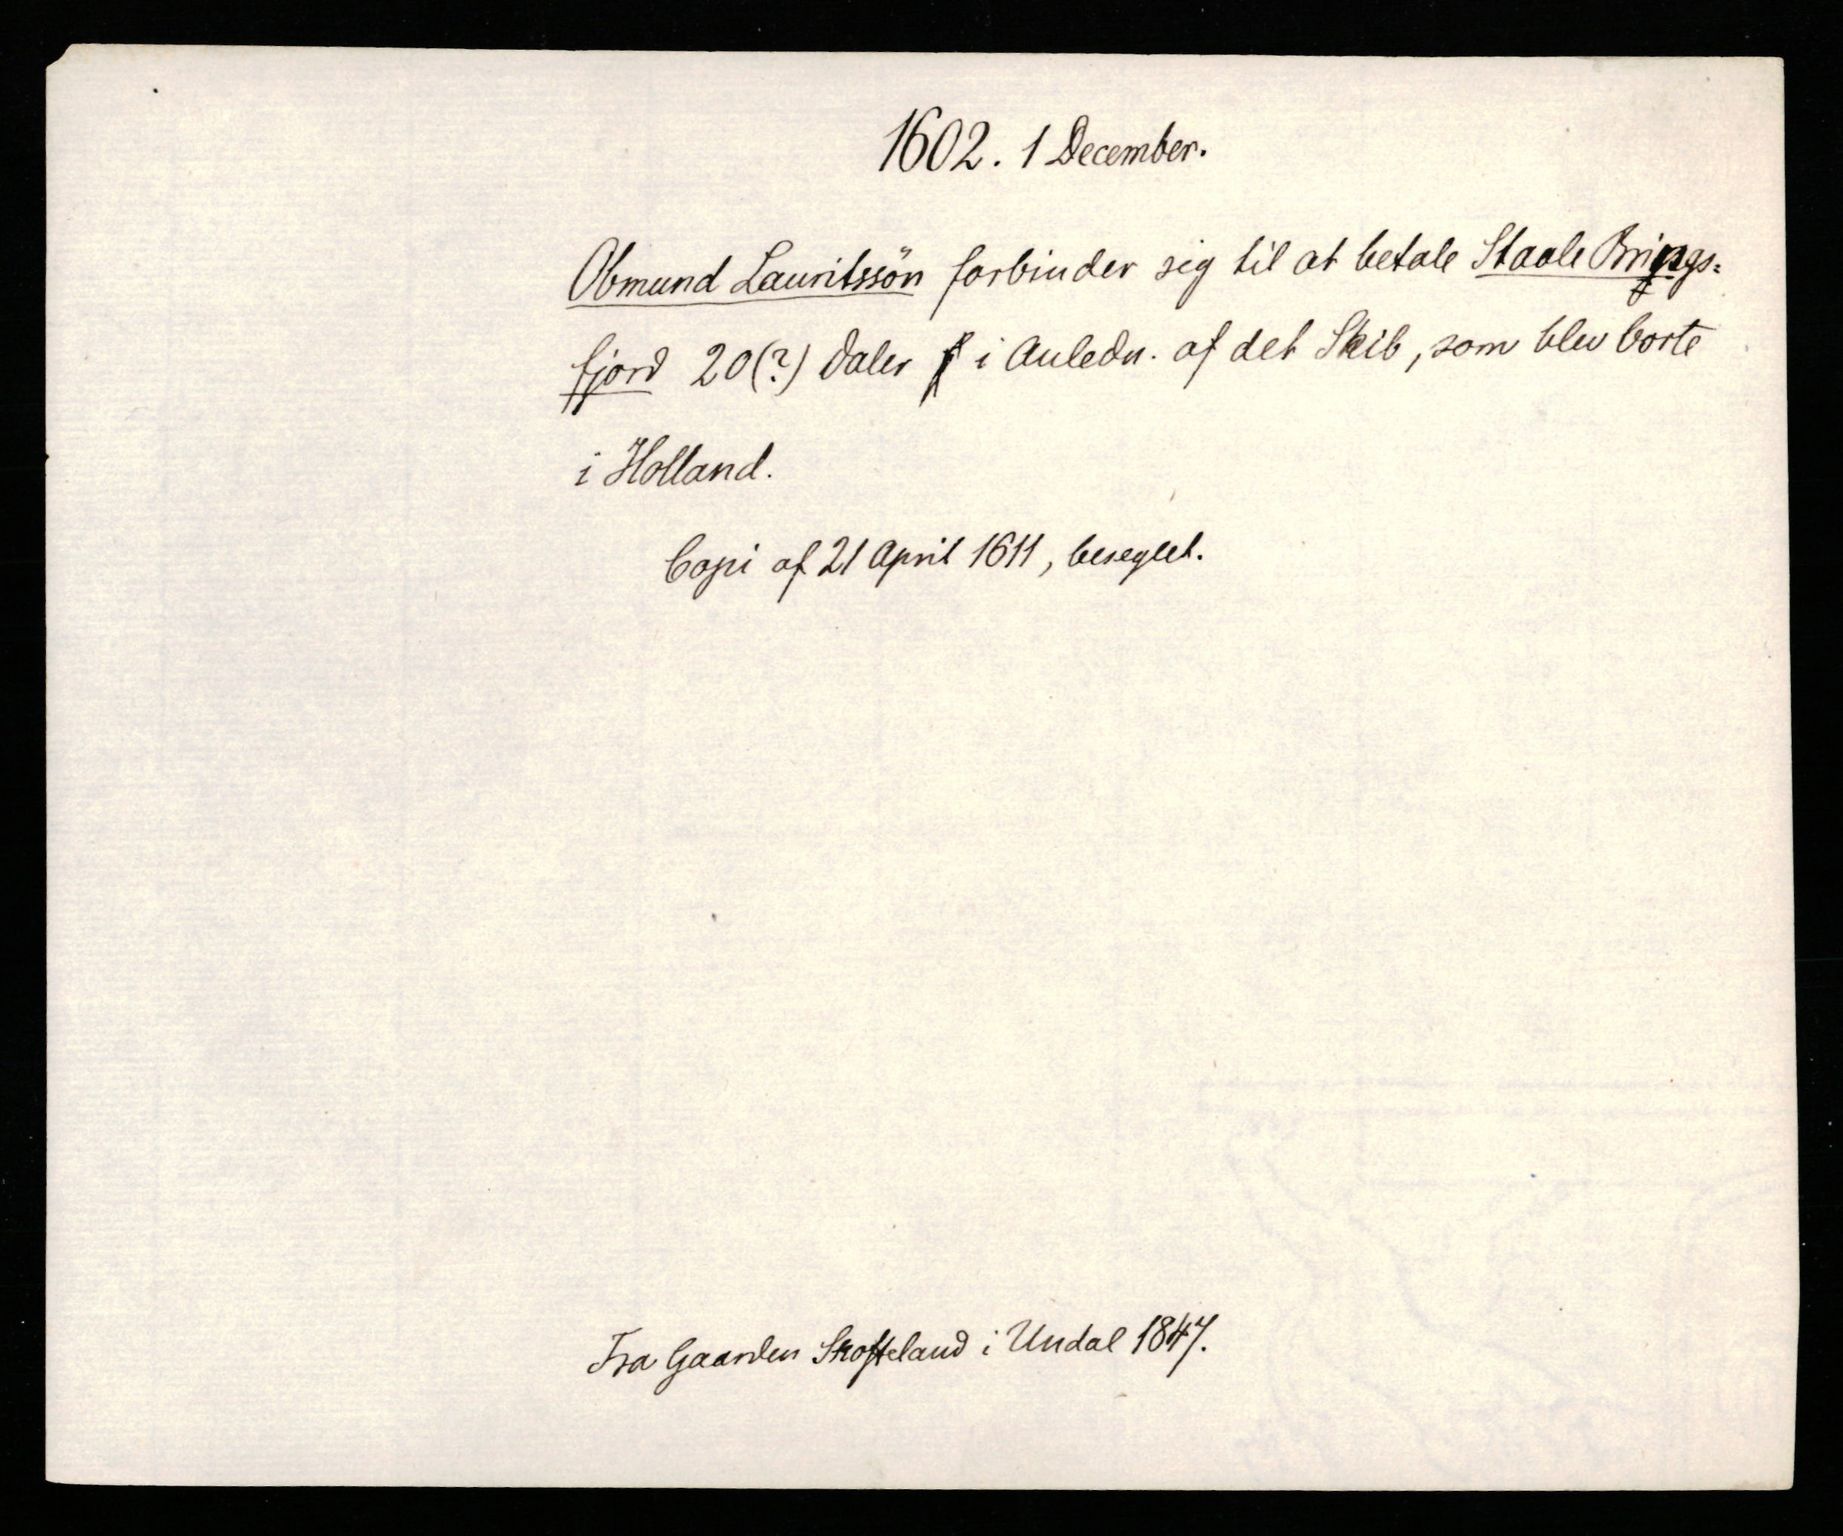 1602. 1 December.
Obmund Lauritssön forbinder sig til at betale Staale Brings=
fjord 20(?) Daler i Anledn. af det Skib, som blev borte
i Holland.
Copi af 21 April 1611, beseglet.
Fra Gaarden Skofteland i Undal 1847.